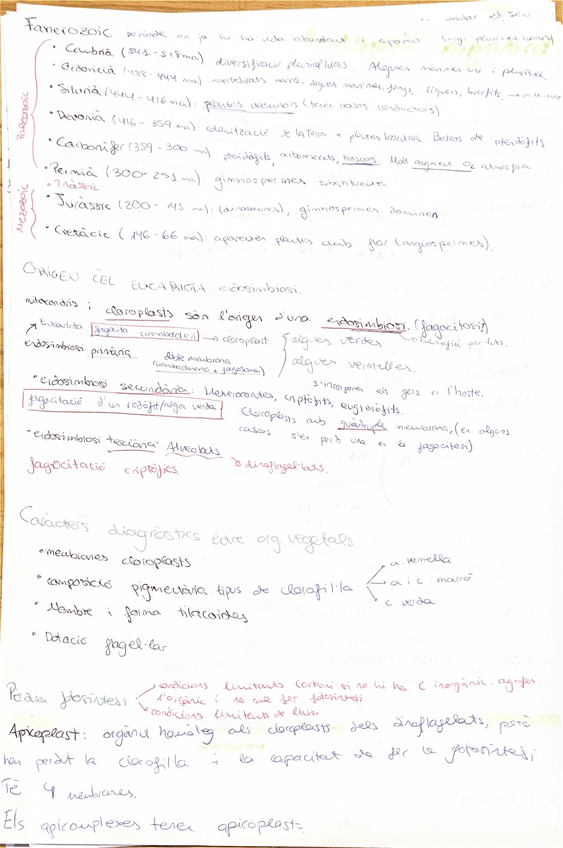 Fanerozoic periode on ja hi ha vida abundant i apareix (org. pluricel·lulars)
Paleozoic
• Cambrià (541-518 ma) diversificació pluricel·lulars. Algues marines uni i pluricel.
• Ordovicià (488-444 ma) invertebrats marins, algues marines, fongs, líquens, briòfits,
• Silurià (444-416 ma): plantes vasculars (tenen vasos conductors)
• Devonià (416-359 ma): colonització de la Terra x plantes vasculars. Boscos de pteridòfits
• Carbonífer (359-300 ma) pteridòfits, arborescents, boscos. Molt augment O2 atmosfera
• Permià (300-251 ma): gimnospermes substitueixen
Mezozoic
• Triàssic
• Juràssic (200-145 ma): (dinosaures), gimnospermes dominen
• Cretàcic (146-66 ma): apareixen plantes amb flor (angiospermes).
ORIGEN CÈL. EUCARIOTA: endosimbiosi.
mitocondris i cloroplasts són l'origen d'una endosimbiosi. (fagocitosi?)
benefici per tots.
Eucariota fagocita cianobacteri → cloroplast algues verdes
endosimbiosi primària doble membrana algues vermelles.
(cianobacteriana + fagosoma)
s'incorporen els gens a l'hoste.
• endosimbiosi secundària: Heterocontes, criptòfits, euglenòfits.
fagocitació d'un rodòfit/alga verda Cloroplasts amb quàdruple membrana, (en alguns
casos s'en perd una en la fagocitosi)
• endosimbiosi terciària: Alveolats
→ dinoflagel·lats.
fagocitació criptòfits
Caràcters diagnòstics entre org. vegetals
• membranes cloroplasts
• composició pigmentària tipus de clorofil·la a. vermella
a i c. marró
c verda
• Nombre i forma tilacoides
• Dotació flagel·lar
Pèrdua fotosíntesi condicions limitants carboni si no hi ha C inorgànic. agafen
l'orgànic i no cal fer fotosíntesi
condicions limitants de llum
Apicoplast: orgànul homòleg als cloroplasts dels dinoflagelats, però
han perdut la clorofil·la i la capacitat de fer la fotosíntesi,
Té 4 membranes.
Els apicomplexes tenen apicoplast